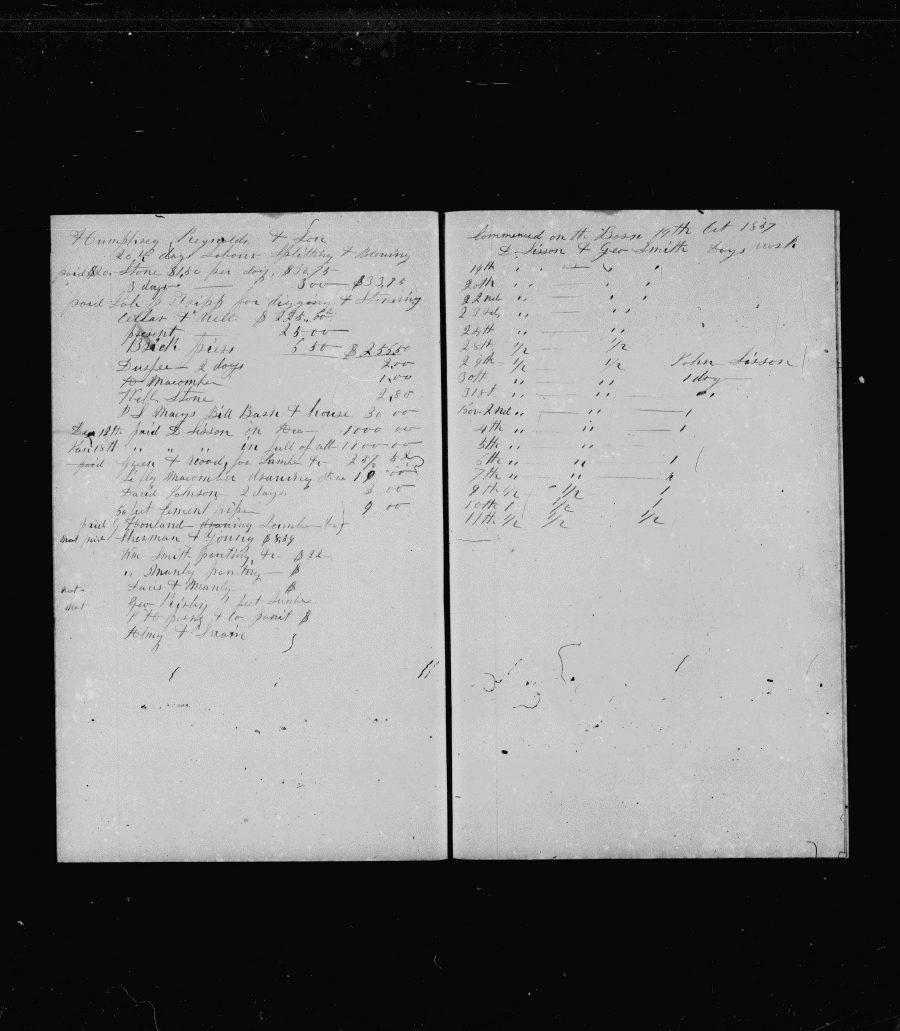 Humphrey Reynolds & Son
20 1/2 days Labour Splitting & Blowing
paid $20. Stone $1.50 per day, $30.75
3 days — 3 00 $33.75
paid Tripp for digging & Stoneing
Cellar & Well $ 225.50
present 25.00
Brick piers 5 50 $ 256.50
2 days 2.00
Macomber 1.00
Well Stone 2.80
P S Macys Bill Barn & house 30 00
Dec 12th paid D. Sisson on 1000 00
Jan 15th " " " in full of all 1100 00
paid Green & Wood for Lumber &c 257
Macomber drawing Stone 10 00
David Johnson 2 days 3 00
50 feet Cement pipe 9 00
paid J Howland drawing Lumber &c
not paid Sherman & Young $8.54
Wm Smith painting &c $22
" Manly painting — $
not Davis & Manly $
not Geo Kirby feet Lumber
& Co paint $
King & Swain
Commenced on the Barn 19th Oct 1857
D. Sisson & Geo Smith days work
19th " " — " "
20th " " — " "
22nd " — " "
23rd " — " "
24th " — " "
28th 1/2 — 1/2
29th " 1/2 John Sisson
30th " — " 1 day
31st " — " — " "
Nov 2nd " — " — 1
4th " — " — 1
5th " — "
6th " — " 1
7th " — " 1
9th 1/2 1/2 1
10th 1 1/2 1
11th 1/2 1/2 1/2